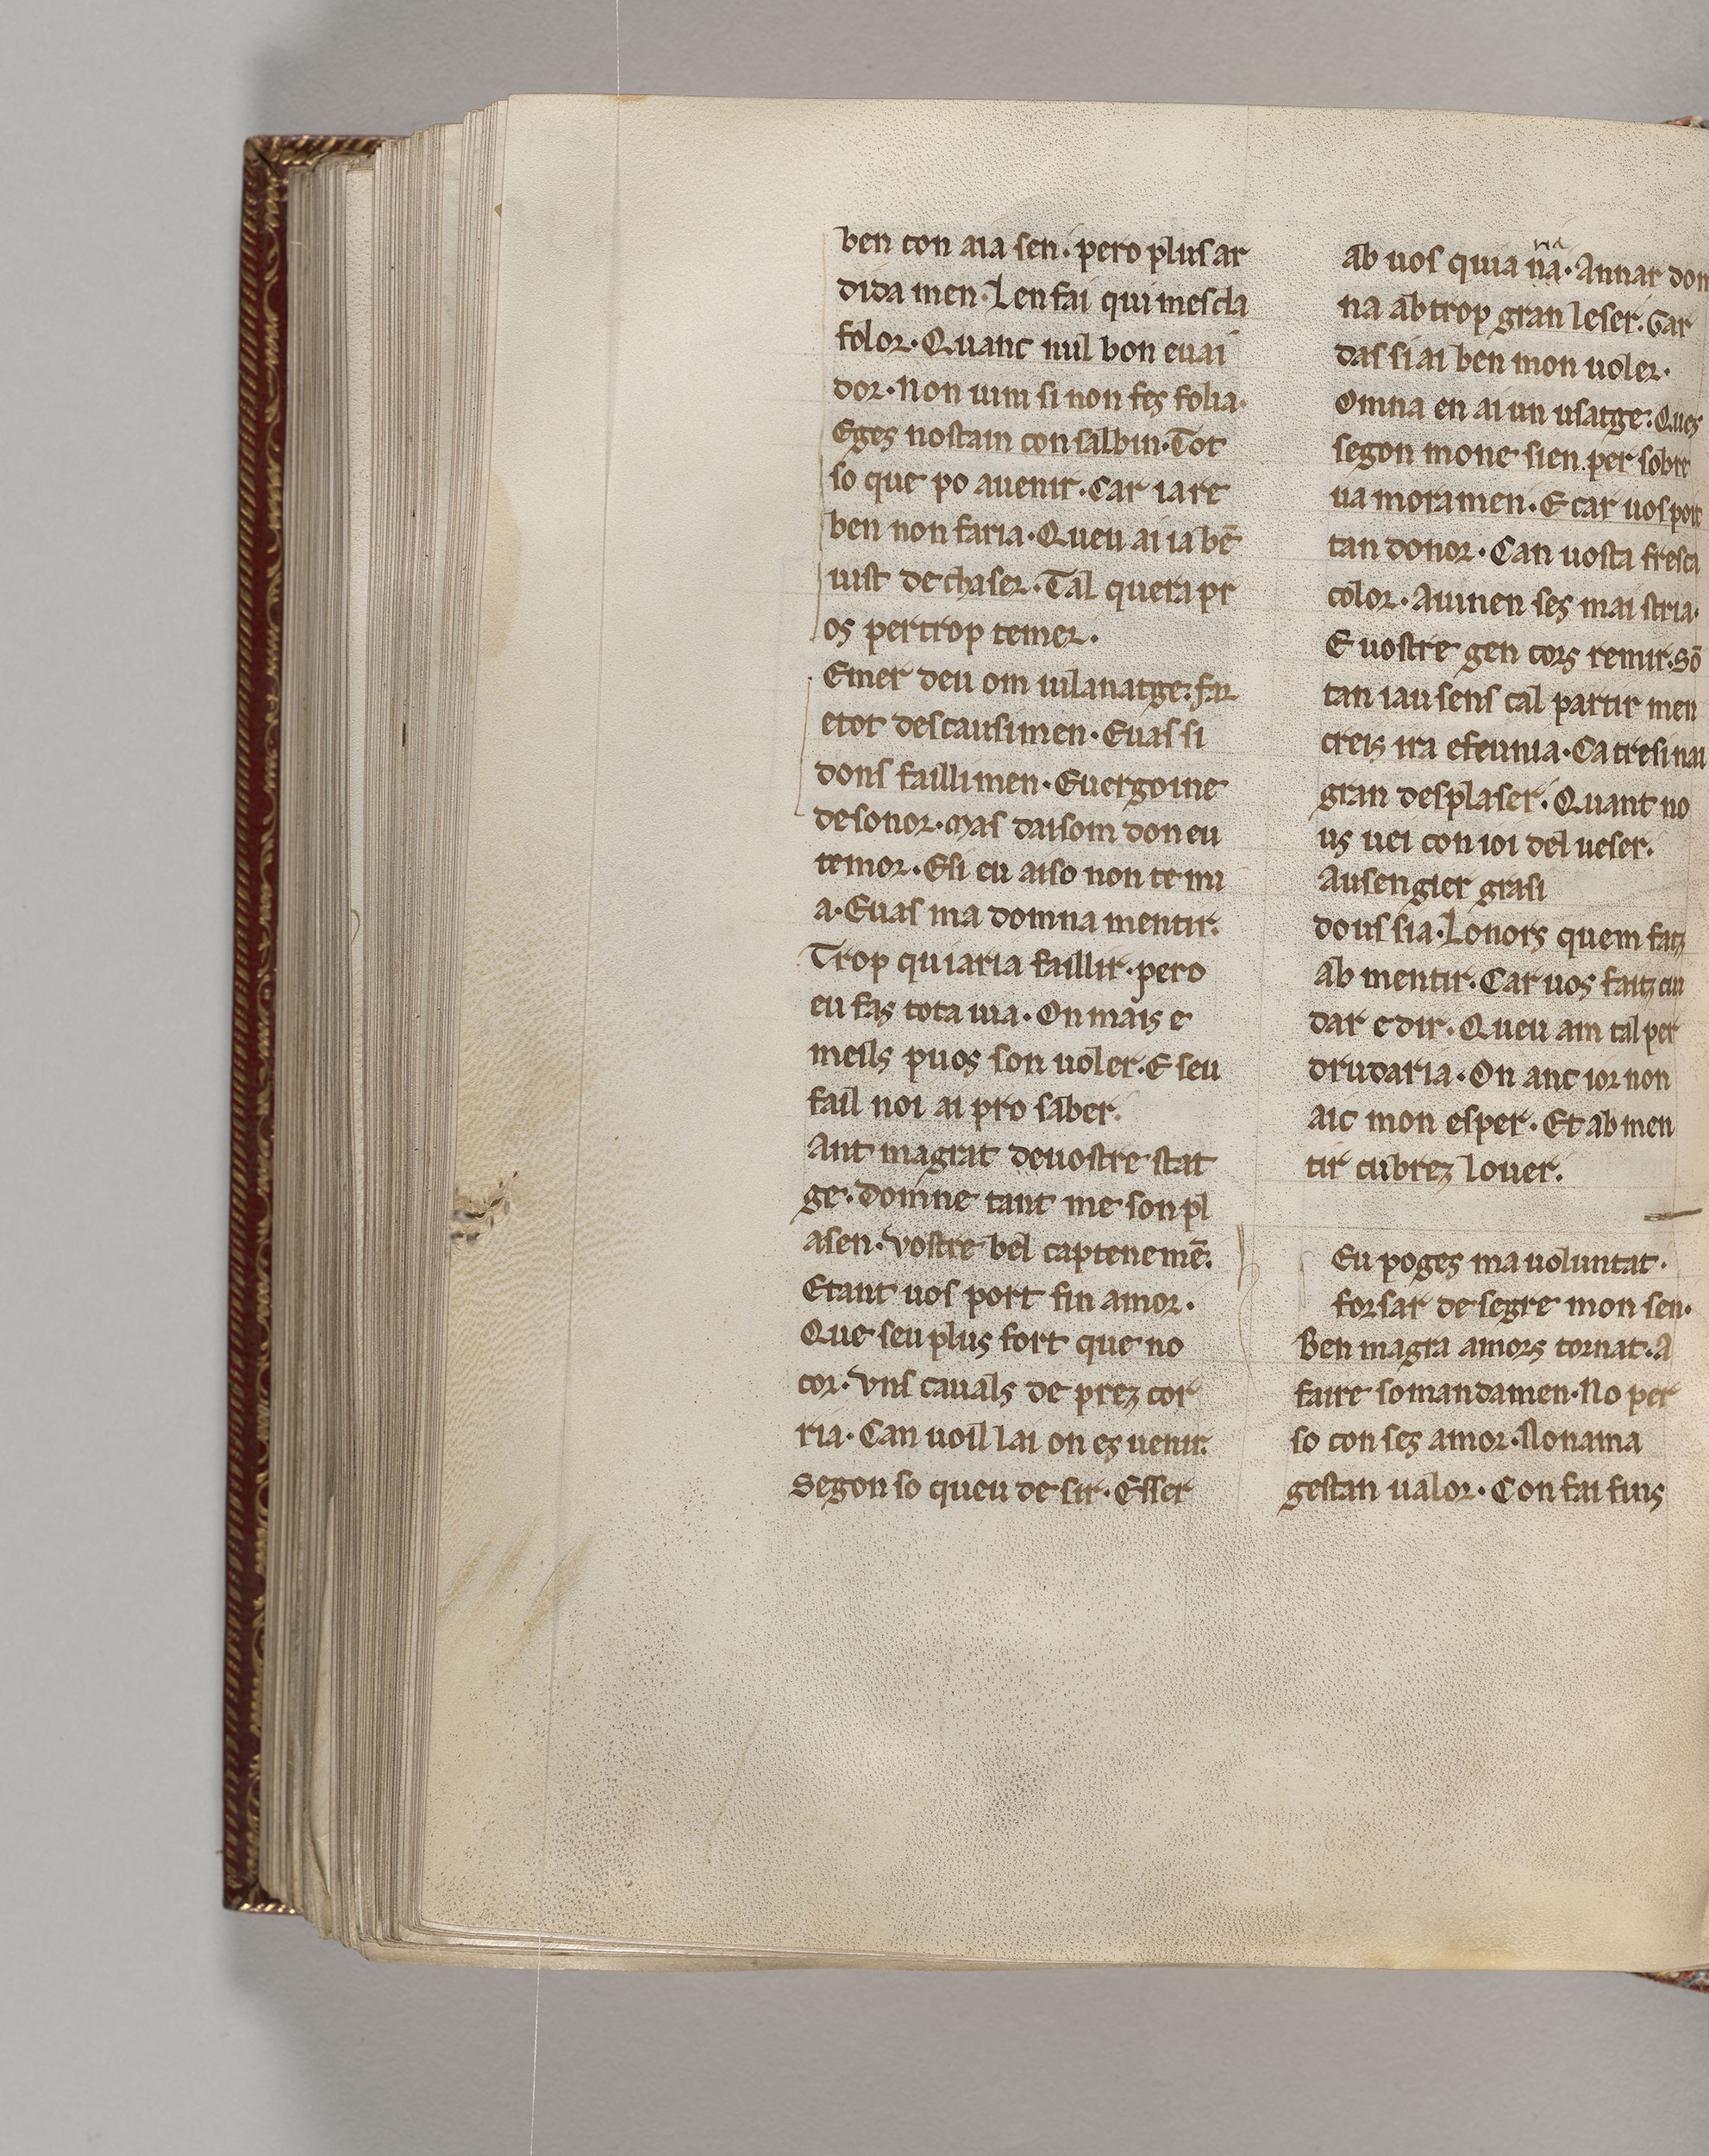 ben con aia sen · pero plus ar
dida men · Len fai qui mescla
folor · Quanc nul bon euai
dor · Non uim si non fes folia ·
Eges nostain con salbin · Tot
so que po auenir · Car ia re
ben non faria · Queu ai ia bē
uist de chaser · Tal quera pr
os per trop temer ·
Emer deu om uilanatge : far
e tot descausimen · Euas si
dons faillimen · E uergoine
desonor · Mas daisom don eu
temor · E si eu aiso non temi
a · Euas ma domna mentir ·
Trop qui aria faillir · pero
eu fas tota uia · On mais e
meils puos son uoler · E seu
fail noi ai pro saber ·
Ant magrat de uostre stat
ge · domne tant me son pl
asen · Vostre bel captenemē ·
E tant uos port fin amor ·
Que seu plus fort que no
cor · Vns cauals de prez cor
ria · Can uoil lai on es uenir ·
Segon so queu desir · Esser
ab uos quia na · Annar don
na
na ab trop gran leser · Gar
das si ai ben mon uoler ·
Omna en ai un usatge : Ques
segon mone sien · per sobre
uamoramen · E car uos por
tan donor · Can uosta fresca
color · Auinen ses maistria ·
E uostre gen cors remir · Sō
tan iausens cal partir men
creis ira efeunia · Catresi nai
gran desplaser · Quant no
us uei con ioi del ueser ·
Ausengier grasi
dous sia · Lonors quem faitz
Ab mentir · Car uos faitz cui
dar e dir · Queu am tal per
drudaria · On anc ior non
aic mon esper · Et ab men
tir cubrez lo uer ·
Eu poges ma uoluntat ·
forsar de segre mon sen ·
Ben magra amors tornat · A
faire so mandamen · No per
so con ses amor · Non ama
ges tan ualor · Con fai fins